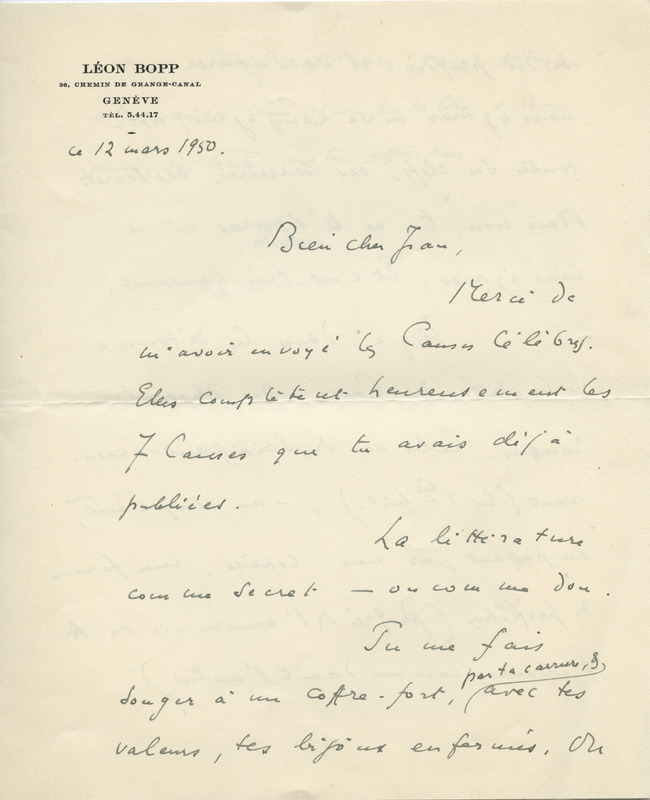 LÉON BOPP
36, CHEMIN DE GRANGE-CANAL
GENÈVE
TÉL. 5.44.17
ce 12 mars 1950.
Bien cher Jean,
Merci de
m'avoir envoyé les Causes Célèbres.
Elles complètent heureusement les
7 Causes que tu avais déjà
publiées.
La littérature
comme secret — ou comme don.
Tu me fais
songer à un coffre-fort, (par ta carrure, &) avec tes
valeurs, tes bijoux enfermés. On